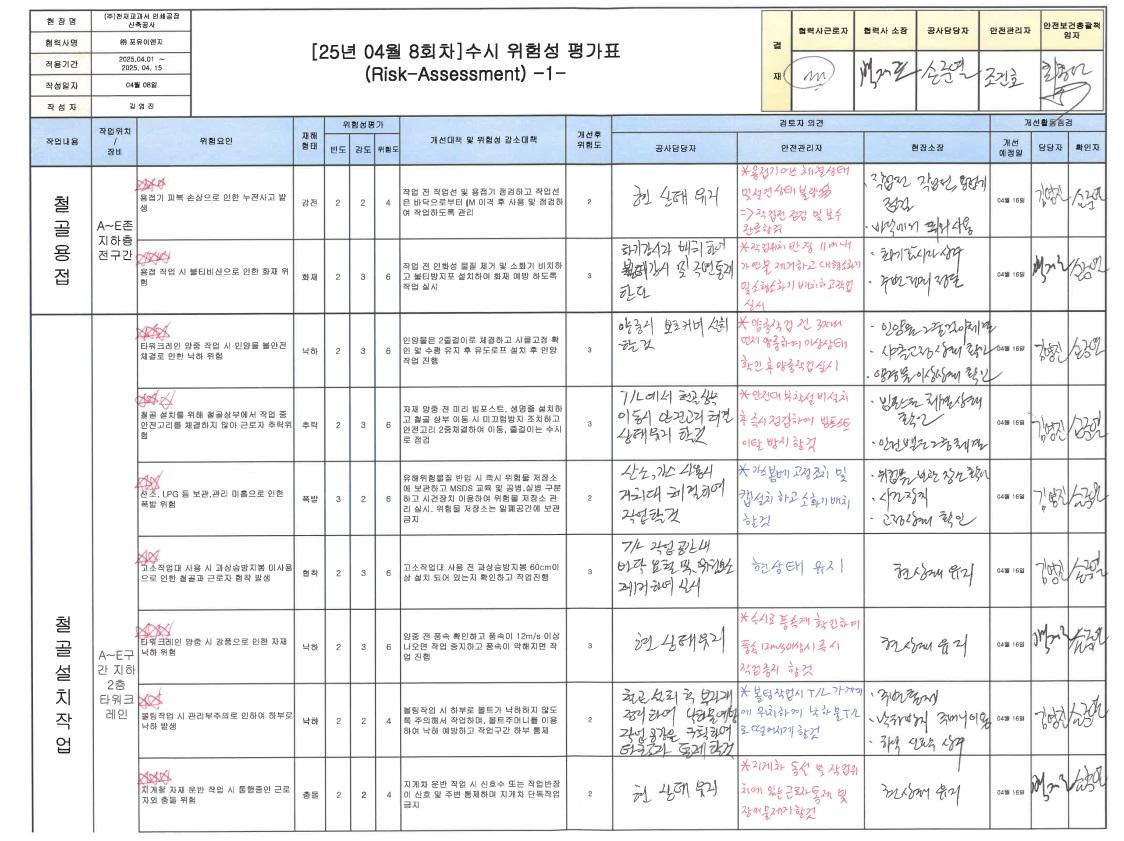 현 장 명
(주)천재교과서 인쇄공장
신축공사
협력사명
㈜ 포유이엔지
적용기간
2025.04.01 ~
2025. 04. 15
작성일자
04월 08일
작 성 자
김 영 진
[25년 04월 8회차]수시 위험성 평가표
(Risk-Assessment) -1-
결
재
협력사근로자
협력사 소장
공사담당자
안전관리자
안전보건총괄책
임자
조건호
작업내용
작업위치
/
장비
위험요인
재해
형태
위험성평가
빈도
강도
위험도
개선대책 및 위험성 감소대책
개선후
위험도
검토자 의견
공사담당자
안전관리자
현장소장
개선활동점검
개선
예정일
담당자
확인자
철골용접
A~E존
지하층
전구간
용접기 피복 손상으로 인한 누전사고 발
생
감전
2
2
4
작업 전 작업선 및 용접기 점검하고 작업선
은 바닥으로부터 1M 이격 후 사용 및 점검하
여 작업하도록 관리
2
현 상태 유지
*용접기 어스 체결상태
및 설전상태 불량
=> 작업전 점검 및 보수
완료할것
· 작업전 작업선, 용접기
점검
· 바닥에서 띄워 사용
04월 16일
김영진
용접 작업 시 불티비산으로 인한 화재 위
험
화재
2
3
6
작업 전 인화성 물질 제거 및 소화기 비치하
고 불티방지포 설치하여 화재 예방 하도록
작업 실시
3
화기감시자 배치 하여
불티감시 및 주변통제
한다
*작업위치 반경 11m 내
가연물 제거하고 대형소화기
및 소형소화기 배치하고 작업
실시
· 화기감시자 상주
· 주변 정리 정돈
04월 16일
철골설치작업
A~E구
간 지하
2층
타워크
레인
타워크레인 양중 작업 시 인양물 불안전
체결로 인한 낙하 위험
낙하
2
3
6
인양물은 2줄걸이로 체결하고 샤클고정 확
인 및 수평 유지 후 유도로프 설치 후 인양
작업 진행
3
양중시 보조커버 설치
할것
*양중작업 전 30cm
먼저 양중하여 이상상태
확인 후 양중작업 실시
· 인양물 2줄걸이 체결
· 샤클고정상태 확인
· 양중물 이상상태 확인
04월 16일
김영진
철골 설치를 위해 철골상부에서 작업 중
안전고리를 체결하지 않아 근로자 추락위
험
추락
2
3
6
자재 양중 전 미리 빔포스트, 생명줄 설치하
고 철골 상부 이동 시 미끄럼방지 조치하고
안전고리 2중체결하여 이동, 줄걸이는 수시
로 점검
3
T/L에서 철골상부
이동시 안전고리 체결
상태유지 할것
*안전대 부착설비 설치
후 즉시 점검하여 빔포스트
이탈 방지 할것
· 빔포스트 체결상태
확인
· 안전벨트 2중 체결
04월 16일
김영진
산소, LPG 등 보관,관리 미흡으로 인한
폭발 위험
폭발
3
2
6
유해위험물질 반입 시 즉시 위험물 저장소
에 보관하고 MSDS 교육 및 공병,실병 구분
하고 시건장치 이용하여 위험물 저장소 관
리 실시. 위험물 저장소는 밀폐공간에 보관
금지
2
산소,가스 사용시
거치대 체결하여
작업할것
*가스봄베 고정조치 및
캡설치 하고 소화기 배치
할것
· 위험물 보관 장소 확인
· 시건장치
· 고정상태 확인
04월 16일
김영진
고소작업대 사용 시 과상승방지봉 미사용
으로 인한 철골과 근로자 협착 발생
협착
2
3
6
고소작업대 사용 전 과상승방지봉 60cm이
상 설치 되어 있는지 확인하고 작업진행
3
T/L 작업 공간내
바닥 요철 및 위험요소
제거하여 실시
현상태 유지
현상태 유지
04월 16일
김영진
타워크레인 양중 시 강풍으로 인한 자재
낙하 위험
낙하
2
3
6
양중 전 풍속 확인하고 풍속이 12m/s 이상
나오면 작업 중지하고 풍속이 약해지면 작
업 진행
3
현 상태유지
*수시로 풍속계 확인하여
풍속 12m/s이상시 즉시
작업중지 할것
현상태 유지
04월 16일
볼팅작업 시 관리부주의로 인하여 하부로
낙하 발생
낙하
2
2
4
볼팅작업 시 하부로 볼트가 낙하하지 않도
록 주의해서 작업하며, 볼트주머니를 이용
하여 낙하 예방하고 작업구간 하부 통제
2
철골 설치 후 부자재
정리하여 낙하물예방
작업공간을 구획하여
*볼팅작업시 T/L 가까이
에 위치하여 낙하물 T/L
로 떨어지게 할것
· 주변통제
· 낙하방지 주머니 이용
· 하부 신호수 상주
04월 16일
김영진
지게차 자재 운반 작업 시 통행중인 근로
자와 충돌 위험
충돌
2
2
4
지게차 운반 작업 시 신호수 또는 작업반장
이 신호 및 주변 통제하며 지게차 단독작업
금지
2
현 상태 유지
*지게차 동선 및 작업위
치에 있는 근로자 통제 및
장애물제거할것
현상태 유지
04월 16일